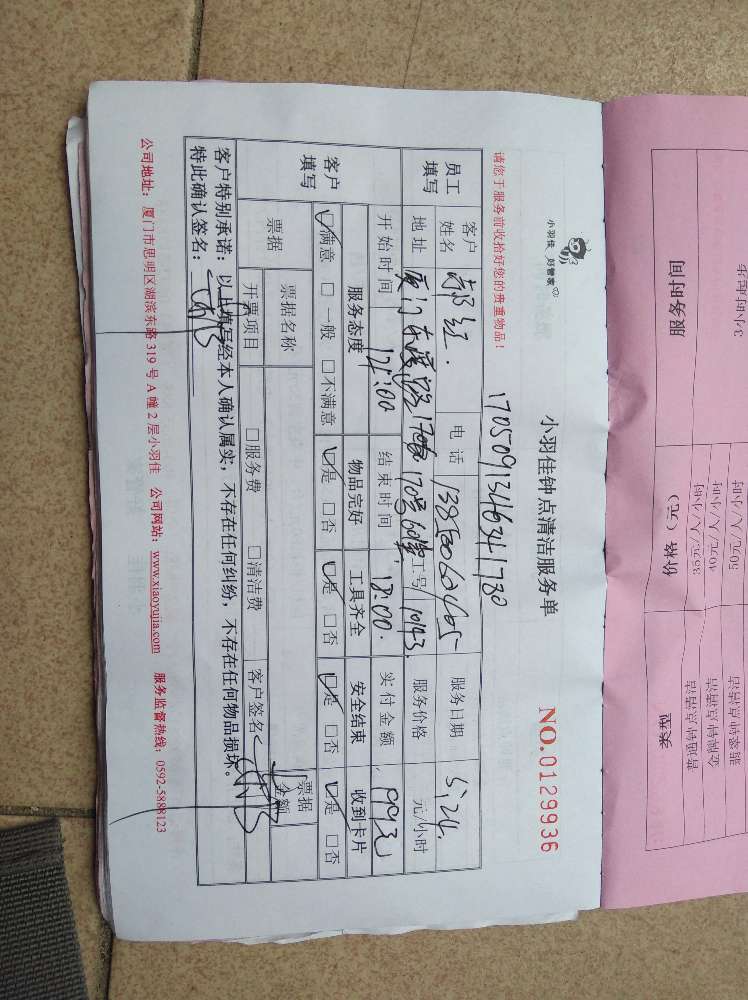 小羽佳 好管家
小羽佳钟点清洁服务单
NO.0129936
请您于服务前收拾好您的贵重物品！
17050913463411730
员工填写
客户姓名
电话
服务日期 5.24.
地址
工号 10143.
服务价格 元/小时
开始时间
结束时间 18:00.
实付金额 99元
客户填写
服务态度 物品完好 工具齐全 安全结束 收到卡片
☑满意 □一般 □不满意 ☑是 □否 ☑是 □否 ☑是 □否 ☑是 □否
票据
票据名称
票据金额
开票项目 □服务费 □清洁费 客户签名
客户特别承诺：以上填写经本人确认属实，不存在任何纠纷，不存在任何物品损坏。
特此确认签名：
公司地址：厦门市思明区湖滨东路 319 号 A 幢 2 层小羽佳 公司网站：www.xiaoyujia.com 服务监督热线：0592-5888123
服务时间 价格（元） 类型
3小时
35元/人/小时 普通钟点清洁
40元/人/小时
50元/人/小时